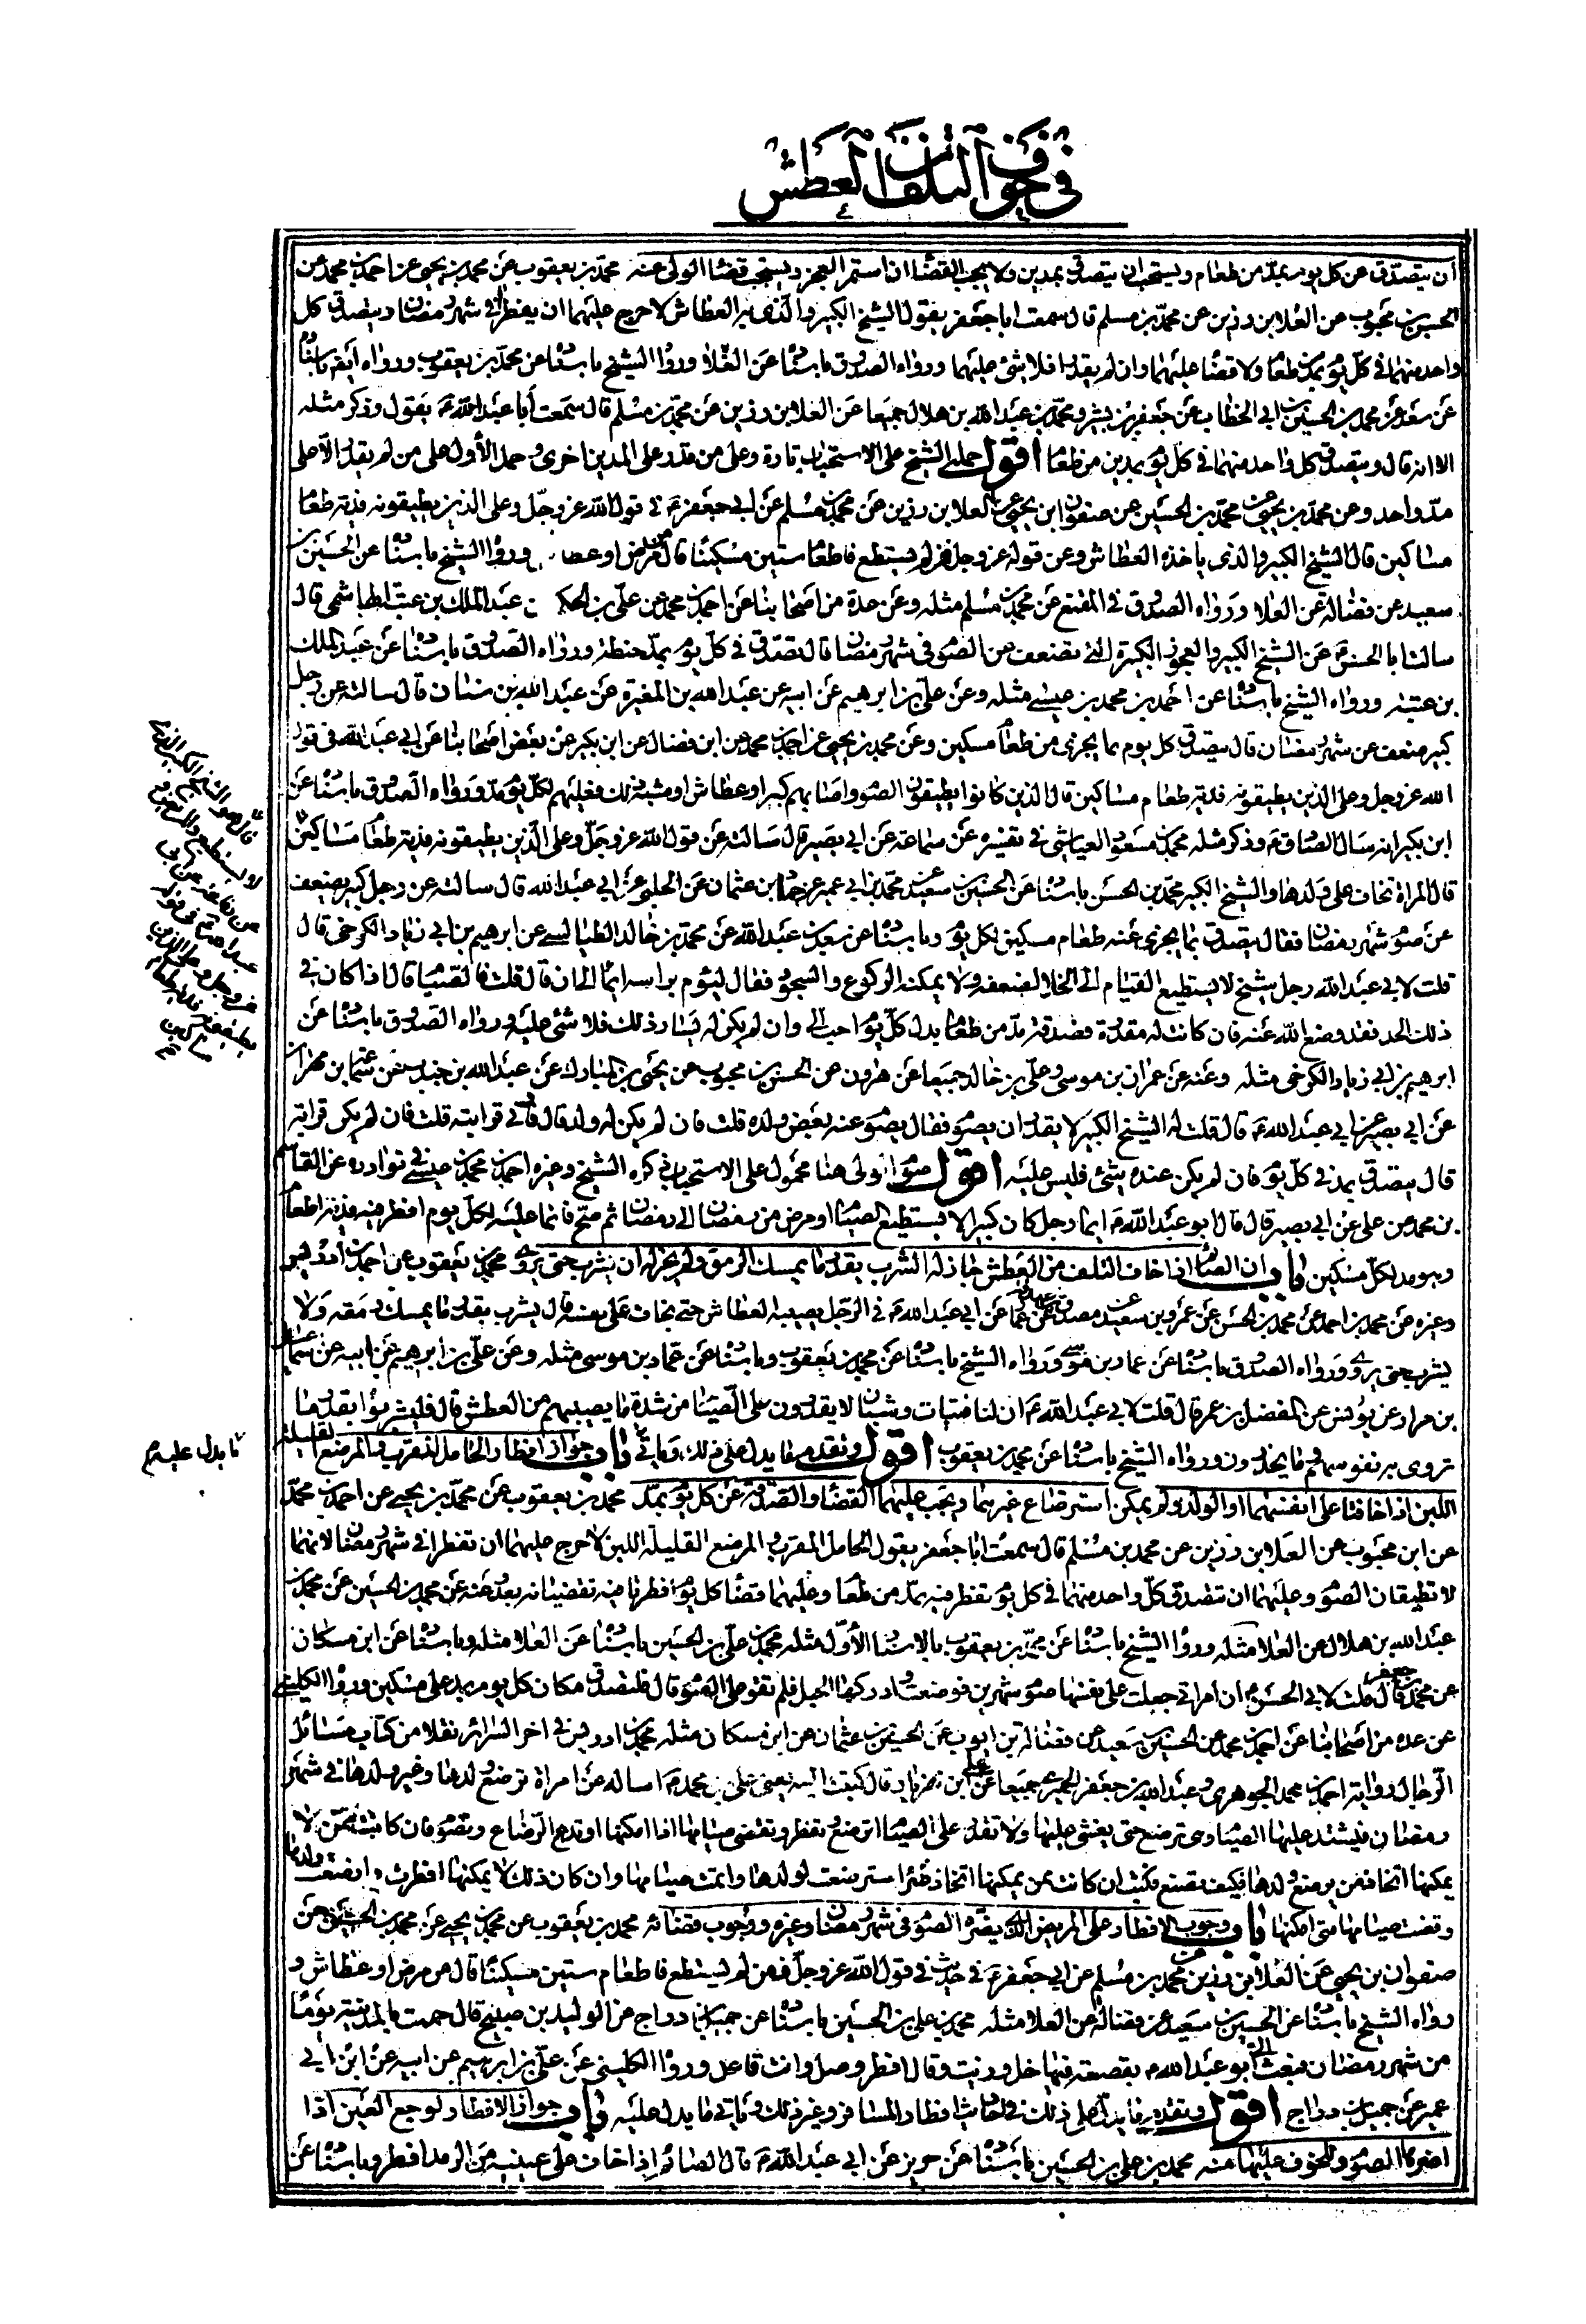 في خوف التلف من العطش
ان يتصدق عن كل يوم بمد من طعام ويستحب ان يتصدق بمدين ولا يجب القضاء ان استمر العجز ويستحب قضاء الولي عنه محمد بن يعقوب عن محمد بن يحيى عن احمد بن محمد عن
الحسن بن محبوب عن العلا بن رزين عن محمد بن مسلم قال سمعت ابا جعفر يقول الشيخ الكبير والذي به العطاش لا حرج عليهما ان يفطرا في شهر رمضان ويتصدق كل
واحد منهما في كل يوم بمد من طعام ولا قضاء عليهما وان لم يقدرا فلا شئ عليهما ورواه الصدوق باسناده عن العلا ورواه الشيخ باسناده عن محمد بن يعقوب ورواه ايضا باسناده
عن سعد عن محمد بن الحسين بن ابي الخطاب عن جعفر بن بشير ومحمد بن عبد الله بن هلال جميعا عن العلا بن رزين عن محمد بن مسلم قال سمعت أبا عبد الله ع يقول وذكر مثله
الا انه قال ويتصدق كل واحد منهما في كل يوم بمدين من طعام اقول حمله الشيخ على الاستحباب تارة وعلى من قدر على المدين اخرى وحمل الأول على من لم يقدر الا على
مد واحد وعن محمد بن يحيى عن محمد بن الحسين عن صفوان ابن يحيى عن العلا بن رزين عن محمد بن مسلم عن ابي جعفر ع في قول الله عز وجل وعلى الذين يطيقونه فدية طعام
مساكين قال الشيخ الكبير والذي ياخذه العطاش وعن قوله عز وجل فمن لم يستطع فاطعام ستين مسكينا قال من مرض او عطاش ورواه الشيخ باسناده عن الحسين بن
سعيد عن فضالة عن العلا ورواه الصدوق في المقنع عن محمد بن مسلم مثله وعن عدة من اصحابنا عن احمد بن محمد عن علي بن الحكم عن عبد الملك بن عتبة الهاشمي قال
سالت ابا الحسن ع عن الشيخ الكبير والعجوز الكبيرة التي تضعف عن الصوم في شهر رمضان قال تصدق في كل يوم بمد حنطة ورواه الصدوق باسناده عن عبد الملك
بن عتبة ورواه الشيخ باسناده عن احمد بن محمد بن عيسى مثله وعن علي بن ابرهيم عن ابيه عن عبد الله بن المغيرة عن عبد الله بن سنان قال سالته عن رجل
كبير ضعف عن شهر رمضان قال يتصدق كل يوم بما يجزى من طعام مسكين وعن محمد بن يحيى عن احمد بن محمد عن ابن فضال عن ابن بكير عن بعض اصحابنا عن ابي عبد الله في قول
الله عز وجل وعلى الذين يطيقونه فدية طعام مساكين قال الذين كانوا يطيقون الصوم واصابهم كبر او عطاش او شبه ذلك فعليهم لكل يوم مد ورواه الصدوق باسناده عن
ابن بكير انه سال الصادق ع وذكر مثله محمد بن مسعود العياشي في تفسيره عن سماعة عن ابي بصير قال سالته عن قول الله عز وجل وعلى الذين يطيقونه فدية طعام مساكين
قال المراة تخاف على ولدها والشيخ الكبير محمد بن الحسن باسناده عن الحسين بن سعيد عن محمد بن ابي عمير عن حماد ابن عثمان عن الحلبي عن ابي عبد الله قال سالته عن رجل كبير يضعف
عن صوم شهر رمضان فقال يتصدق بما يجزي عنه طعام مسكين لكل يوم وباسناده عن سعد بن عبد الله عن محمد بن خالد الطيالسي عن ابرهيم بن ابي زياد الكرخي قال
قلت لابي عبد الله رجل شيخ لا يستطيع القيام الى الخلاء لضعفه ولا يمكنه الركوع والسجود فقال ليؤم براسه ايماء الى ان قال قلت فالصيام قال اذا كان في
ذلك الحد فقد وضع الله عنه فان كانت له مقدرة فصدقة مد من طعام بدل كل يوم احب الي وان لم يكن له يسار ذلك فلا شئ عليه ورواه الصدوق باسناده عن
ابرهيم بن ابي زياد الكرخي مثله وعنه عن عمران بن موسى وعلي بن خالد جميعا عن هارون عن الحسن بن محبوب عن يحيى بن المبارك عن عبد الله بن جندب عن
عن ابي بصير عن ابي عبد الله ع قال قلت له الشيخ الكبير لا يقدر ان يصوم فقال يصوم عنه بعض ولده قلت فان لم يكن له ولد قال فادنى قرابته قلت فان لم يكن قرابة
قال يتصدق بمد في كل يوم فان لم يكن عنده شئ فليس عليه اقول صوم الولي هنا محمول على الاستحباب ذكره الشيخ وغيره احمد بن محمد بن عيسى في نوادره عن القاسم
بن محمد عن علي عن ابي بصير قال قال ابو عبد الله ع ايما رجل كان كبيرا لا يستطيع الصيام او مرض من رمضان الى رمضان ثم صح فانما عليه لكل يوم افطر فيه فدية اطعام
وهو مد لكل مسكين باب ان الصائم اذا خاف التلف من العطش جاز له الشرب بقدر ما يمسك الرمق ولم يجز له ان يشرب حتى يروى محمد بن يعقوب عن احمد بن ادريس
وغيره عن محمد بن احمد عن محمد بن الحسن عن عمرو بن سعيد عن مصدق عن عمار عن ابي عبد الله ع في الرجل يصيبه العطاش حتى يخاف على نفسه قال يشرب بقدر ما يمسك رمقه ولا
يشرب حتى يروى ورواه الصدوق باسناده عن عمار بن موسى ورواه الشيخ باسناده عن محمد بن يعقوب وباسناده عن عمار بن موسى مثله وعن علي بن ابرهيم عن ابيه عن اسماعيل
بن مرار عن يونس عن المفضل بن عمر قال قلت لابي عبد الله ع ان لنا فتيات وشبان لا يقدرون على الصيام من شدة ما يصيبهم من العطش قال فليشربوا بقدر ما
تروى به نفوسهم وما يحذرون ورواه الشيخ باسناده عن محمد بن يعقوب اقول وتقدم ما يدل على ذلك وياتي باب جواز افطار الحامل المقرب والمرضع القليلة
اللبن اذا خافتا على انفسهما او الولد ولم يمكن استرضاع غيرهما ويجب عليهما القضاء والصدقة عن كل يوم بمد محمد بن يعقوب عن محمد بن يحيى عن احمد بن محمد
عن ابن محبوب عن العلا بن رزين عن محمد بن مسلم قال سمعت ابا جعفر يقول الحامل المقرب والمرضع القليلة اللبن لا حرج عليهما ان تفطرا في شهر رمضان لانهما
لا تطيقان الصوم وعليهما ان تتصدق كل واحد منهما في كل يوم تفطر فيه بمد من طعام وعليهما قضاء كل يوم افطرتا فيه تقضيانه بعد وعنه عن محمد بن الحسين عن محمد بن
عبد الله بن هلال عن العلا مثله ورواه الشيخ باسناده عن محمد بن يعقوب بالاسناد الأول مثله محمد بن علي بن الحسين باسناده عن العلا مثله وباسناده عن ابن مسكان
عن محمد بن جعفر قال قلت لابي الحسن ع ان امراتي جعلت على نفسها صوم شهرين فوضعت ولدها وادركها الحبل فلم تقو على الصوم قال فلتصدق مكان كل يوم بمد على مسكين ورواه الكليني
عن عدة من اصحابنا عن احمد بن محمد عن الحسين بن سعيد عن فضالة بن ايوب عن الحسين بن عثمان عن ابن مسكان مثله محمد بن ادريس في اخر السرائر نقلا من كتاب مسائل
الرجال رواية احمد بن محمد الجوهري وعبد الله بن جعفر الحميري جميعا عن علي ابن مهزيار قال كتبت اليه يعني علي بن محمد ع اساله عن امراة ترضع ولدها وغير ولدها في شهر
رمضان فيشتد عليها الصيام وهي ترضع حتى يغشى عليها ولا تقدر على الصيام اترضع وتفطر وتقضي صيامها اذا امكنها او تدع الرضاع وتصوم فان كانت ممن لا
يمكنها اتخاذ من يرضع ولدها فكيف تصنع فكتب ان كانت ممن يمكنها اتخاذ ظئر استرضعت لولدها واتمت صيامها وان كان ذلك لا يمكنها افطرت وارضعت ولدها
وقضت صيامها متى امكنها باب وجوب الافطار على المريض الذي يضره الصوم في شهر رمضان وغيره ووجوب قضائه محمد بن يعقوب عن محمد بن يحيى عن محمد بن الحسين عن
صفوان بن يحيى عن العلا بن رزين عن محمد بن مسلم عن ابي جعفر ع في حديث في قول الله عز وجل فمن لم يستطع فاطعام ستين مسكينا قال من مرض او عطاش و
رواه الشيخ باسناده عن الحسين بن سعيد عن فضالة عن العلا مثله محمد بن علي بن الحسين باسناده عن جميل بن دراج عن الوليد بن صبيح قال حممت بالمدينة يوما
من شهر رمضان فبعث الي ابو عبد الله ع بقصعة فيها خل وزيت وقال افطر وصل وانت قاعد ورواه الكليني عن علي بن ابرهيم عن ابيه عن ابن ابي
عمير عن جميل بن دراج اقول وتقدم ما يدل على ذلك في احاديث افطار المسافر وغير ذلك وياتي ما يدل عليه باب جواز الافطار لوجع العين اذا
اضر بها الصوم وللخوف عليها منه محمد بن علي بن الحسين باسناده عن حريز عن ابي عبد الله ع قال الصائم اذا خاف على عينيه من الرمد افطر وباسناده عن
ما يدل عليه